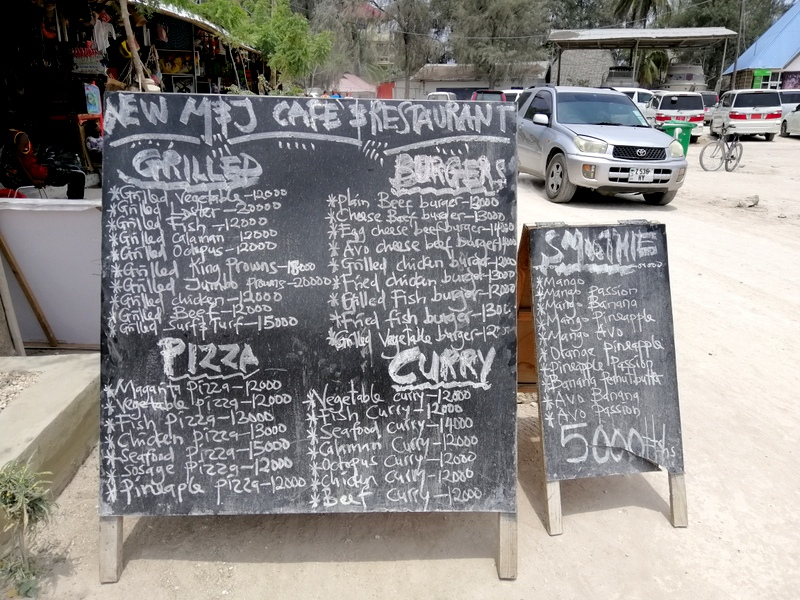 NEW M&J CAFE & RESTAURANT
GRILLED
*Grilled Vegetable-12000
*Grilled Lobster-20000
*Grilled Fish-12000
*Grilled Calamari-12000
*Grilled Octopus-12000
*Grilled King Prowns-18000
*Grilled Jumbo Prowns-20000
*Grilled chicken-12000
*Grilled Beef-12000
*Grilled Surf & Turf-15000
BURGERS
*Plain Beef burger-12000
*Cheese Beef burger-13000
*Egg cheese beef burger-14000
*Avo cheese beef burger-14000
*Grilled chicken burger-12000
*Fried chicken burger-13000
*Grilled Fish burger-12000
*Fried fish burger-1300
*Grilled Vegetable burger-12
PIZZA
*Magarita Pizza-12000
*Vegetable Pizza-12000
*Fish Pizza-13000
*Chicken Pizza-13000
*Seafood Pizza-15000
*Sosage Pizza-12000
*Pineaple Pizza-12000
CURRY
*Vegetable curry-12000
*Fish Curry-12000
*Seafood curry-14000
*Calamari Curry-12000
*Octopus Curry-12000
*Chicken Curry-12000
*Beef Curry-12000
SMOTHIE
*Mango
*Mango Passion
*Mango Banana
*Mango Pineapple
*Mango Avo
*Orange pineapple
*Pineapple Passion
*Banana Peanut butter
*Avo Banana
*Avo Passion
5000Tshs
TOYOTA